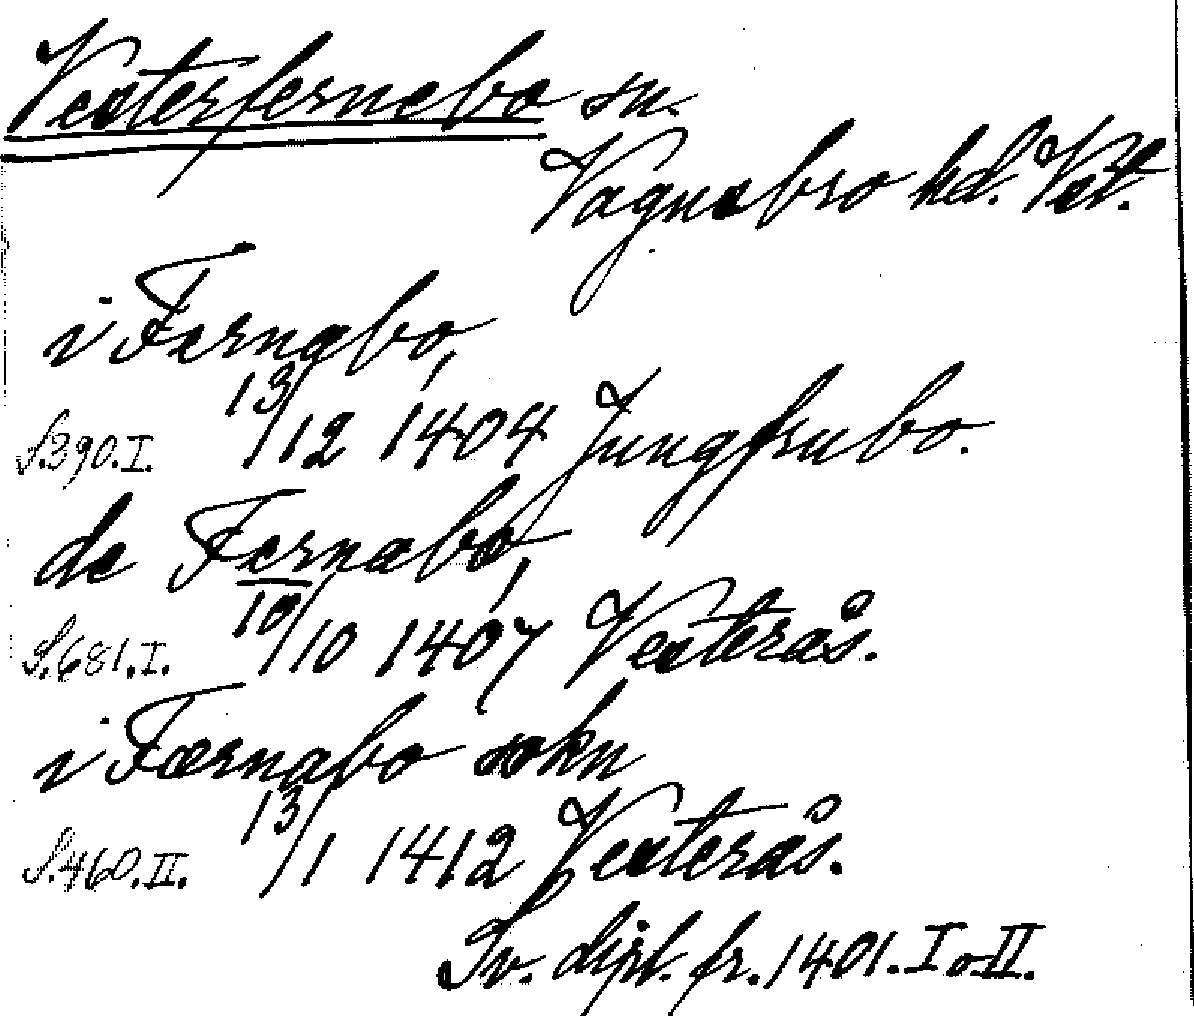 Vesterfernebo sn.
Vagnsbro hd. Vst.
i Fernabo,
S.390.I. 13/12 1404 Jungfrubo.
de Fernabo,
S.681.I. 10/10 1407 Vesterås.
i Færnabo sokn
S.460.II. 13/1 1412 Vesterås.
Sv. dipl. fr. 1401. I o. II.